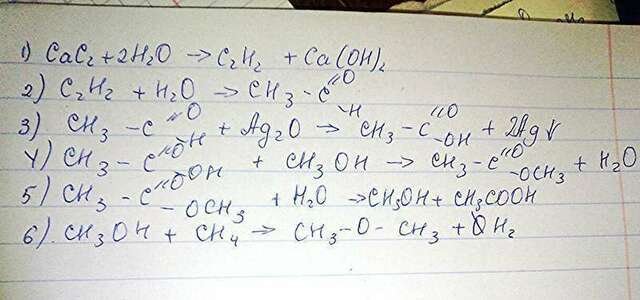 1) CaC₂ + 2H₂O → C₂H₂ + Ca(OH)₂
2) C₂H₂ + H₂O → CH₃ – C =O –H
3) CH₃ – C =O –H + Ag₂O → CH₃ – C =O –OH + 2Ag↓
4) CH₃ – C =O –OH + CH₃OH → CH₃ – C =O –OCH₃ + H₂O
5) CH₃ – C =O –OCH₃ + H₂O → CH₃OH + CH₃COOH
6) CH₃OH + CH₄ → CH₃ – O – CH₃ + H₂